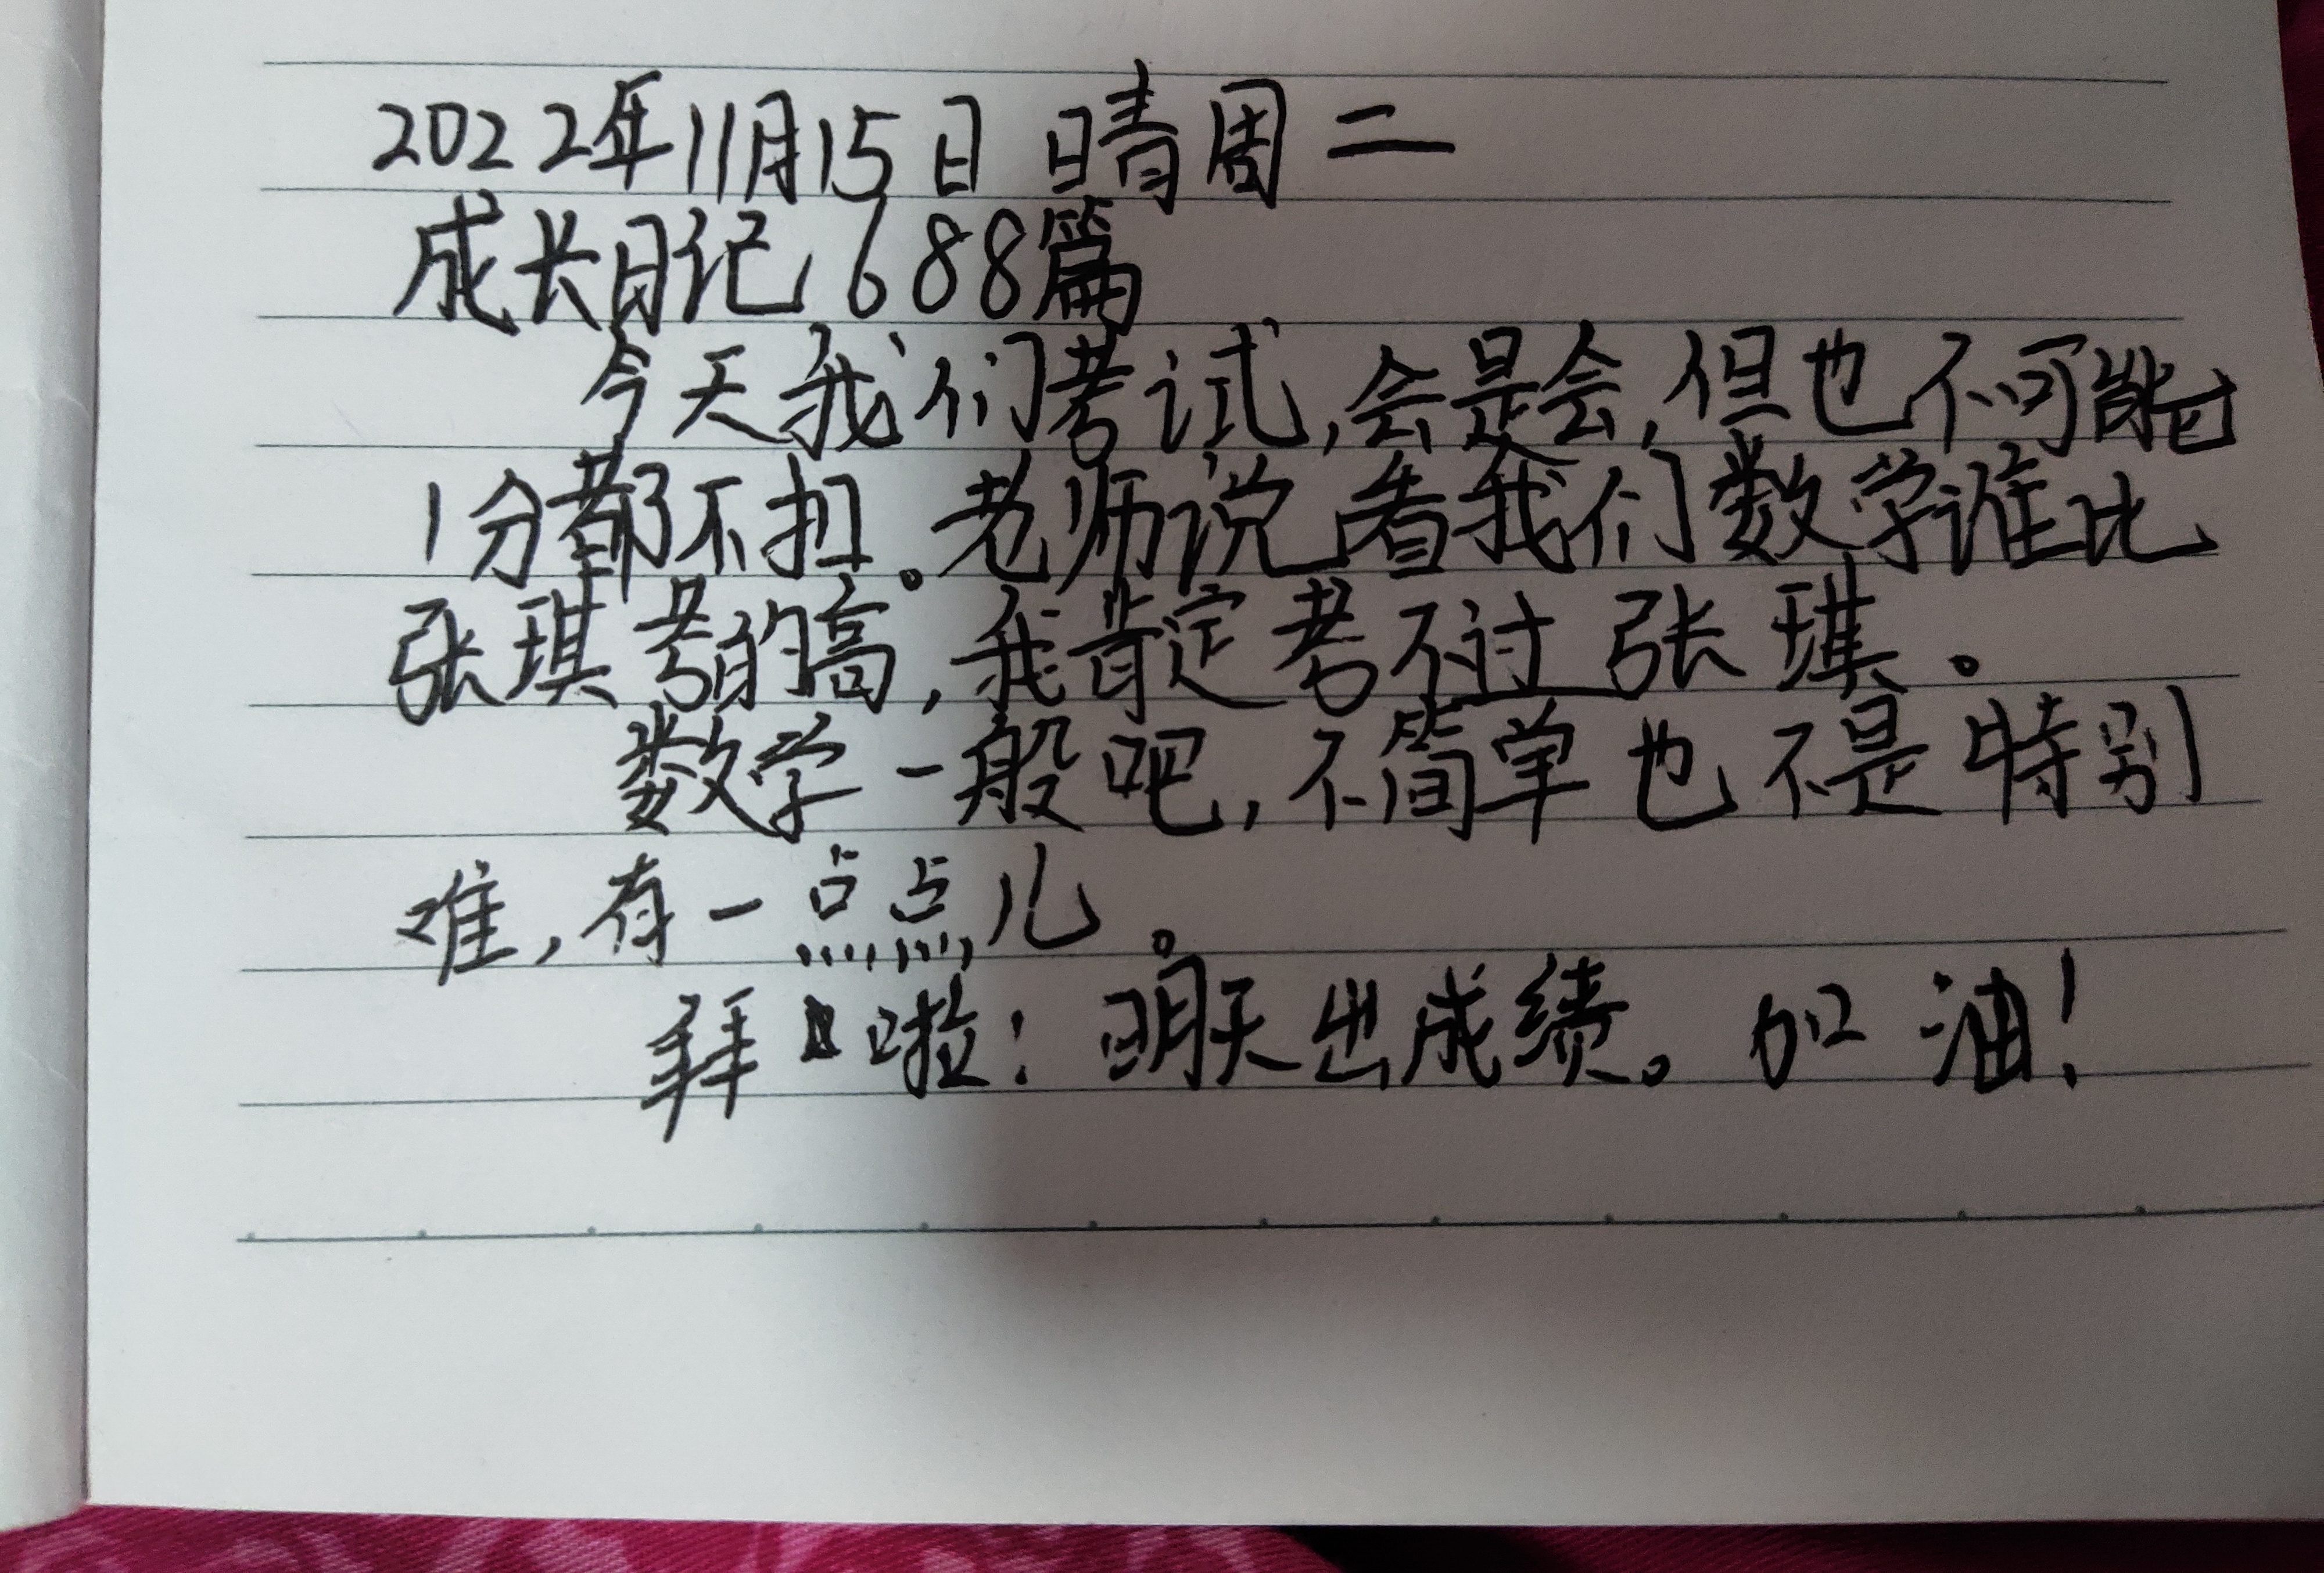 2022年11月15日 晴周二
成长日记688篇
今天我们考试,会是会,但也不可能
1分都不扣。老师说看我们数学谁比
张琪考的高,我肯定考不过张琪。
数学一般吧,不简单也不是特别
难,有一点点儿。
拜啦!明天出成绩。加油!